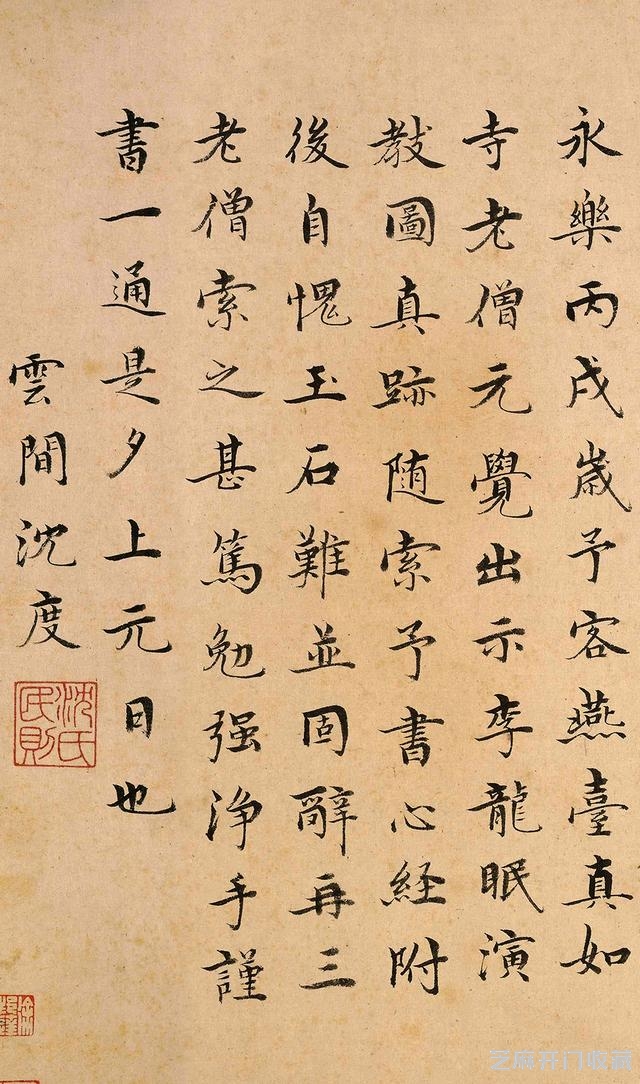 永樂丙戌歲予客燕臺真如
寺老僧元覺出示李龍眠演
教圖真跡随索予書心経附
後自愧玉石難並固辭再三
老僧索之甚篤勉强浄手謹
書一通是夕上元日也
雲間沈度
沈氏民則
芝麻开门收藏